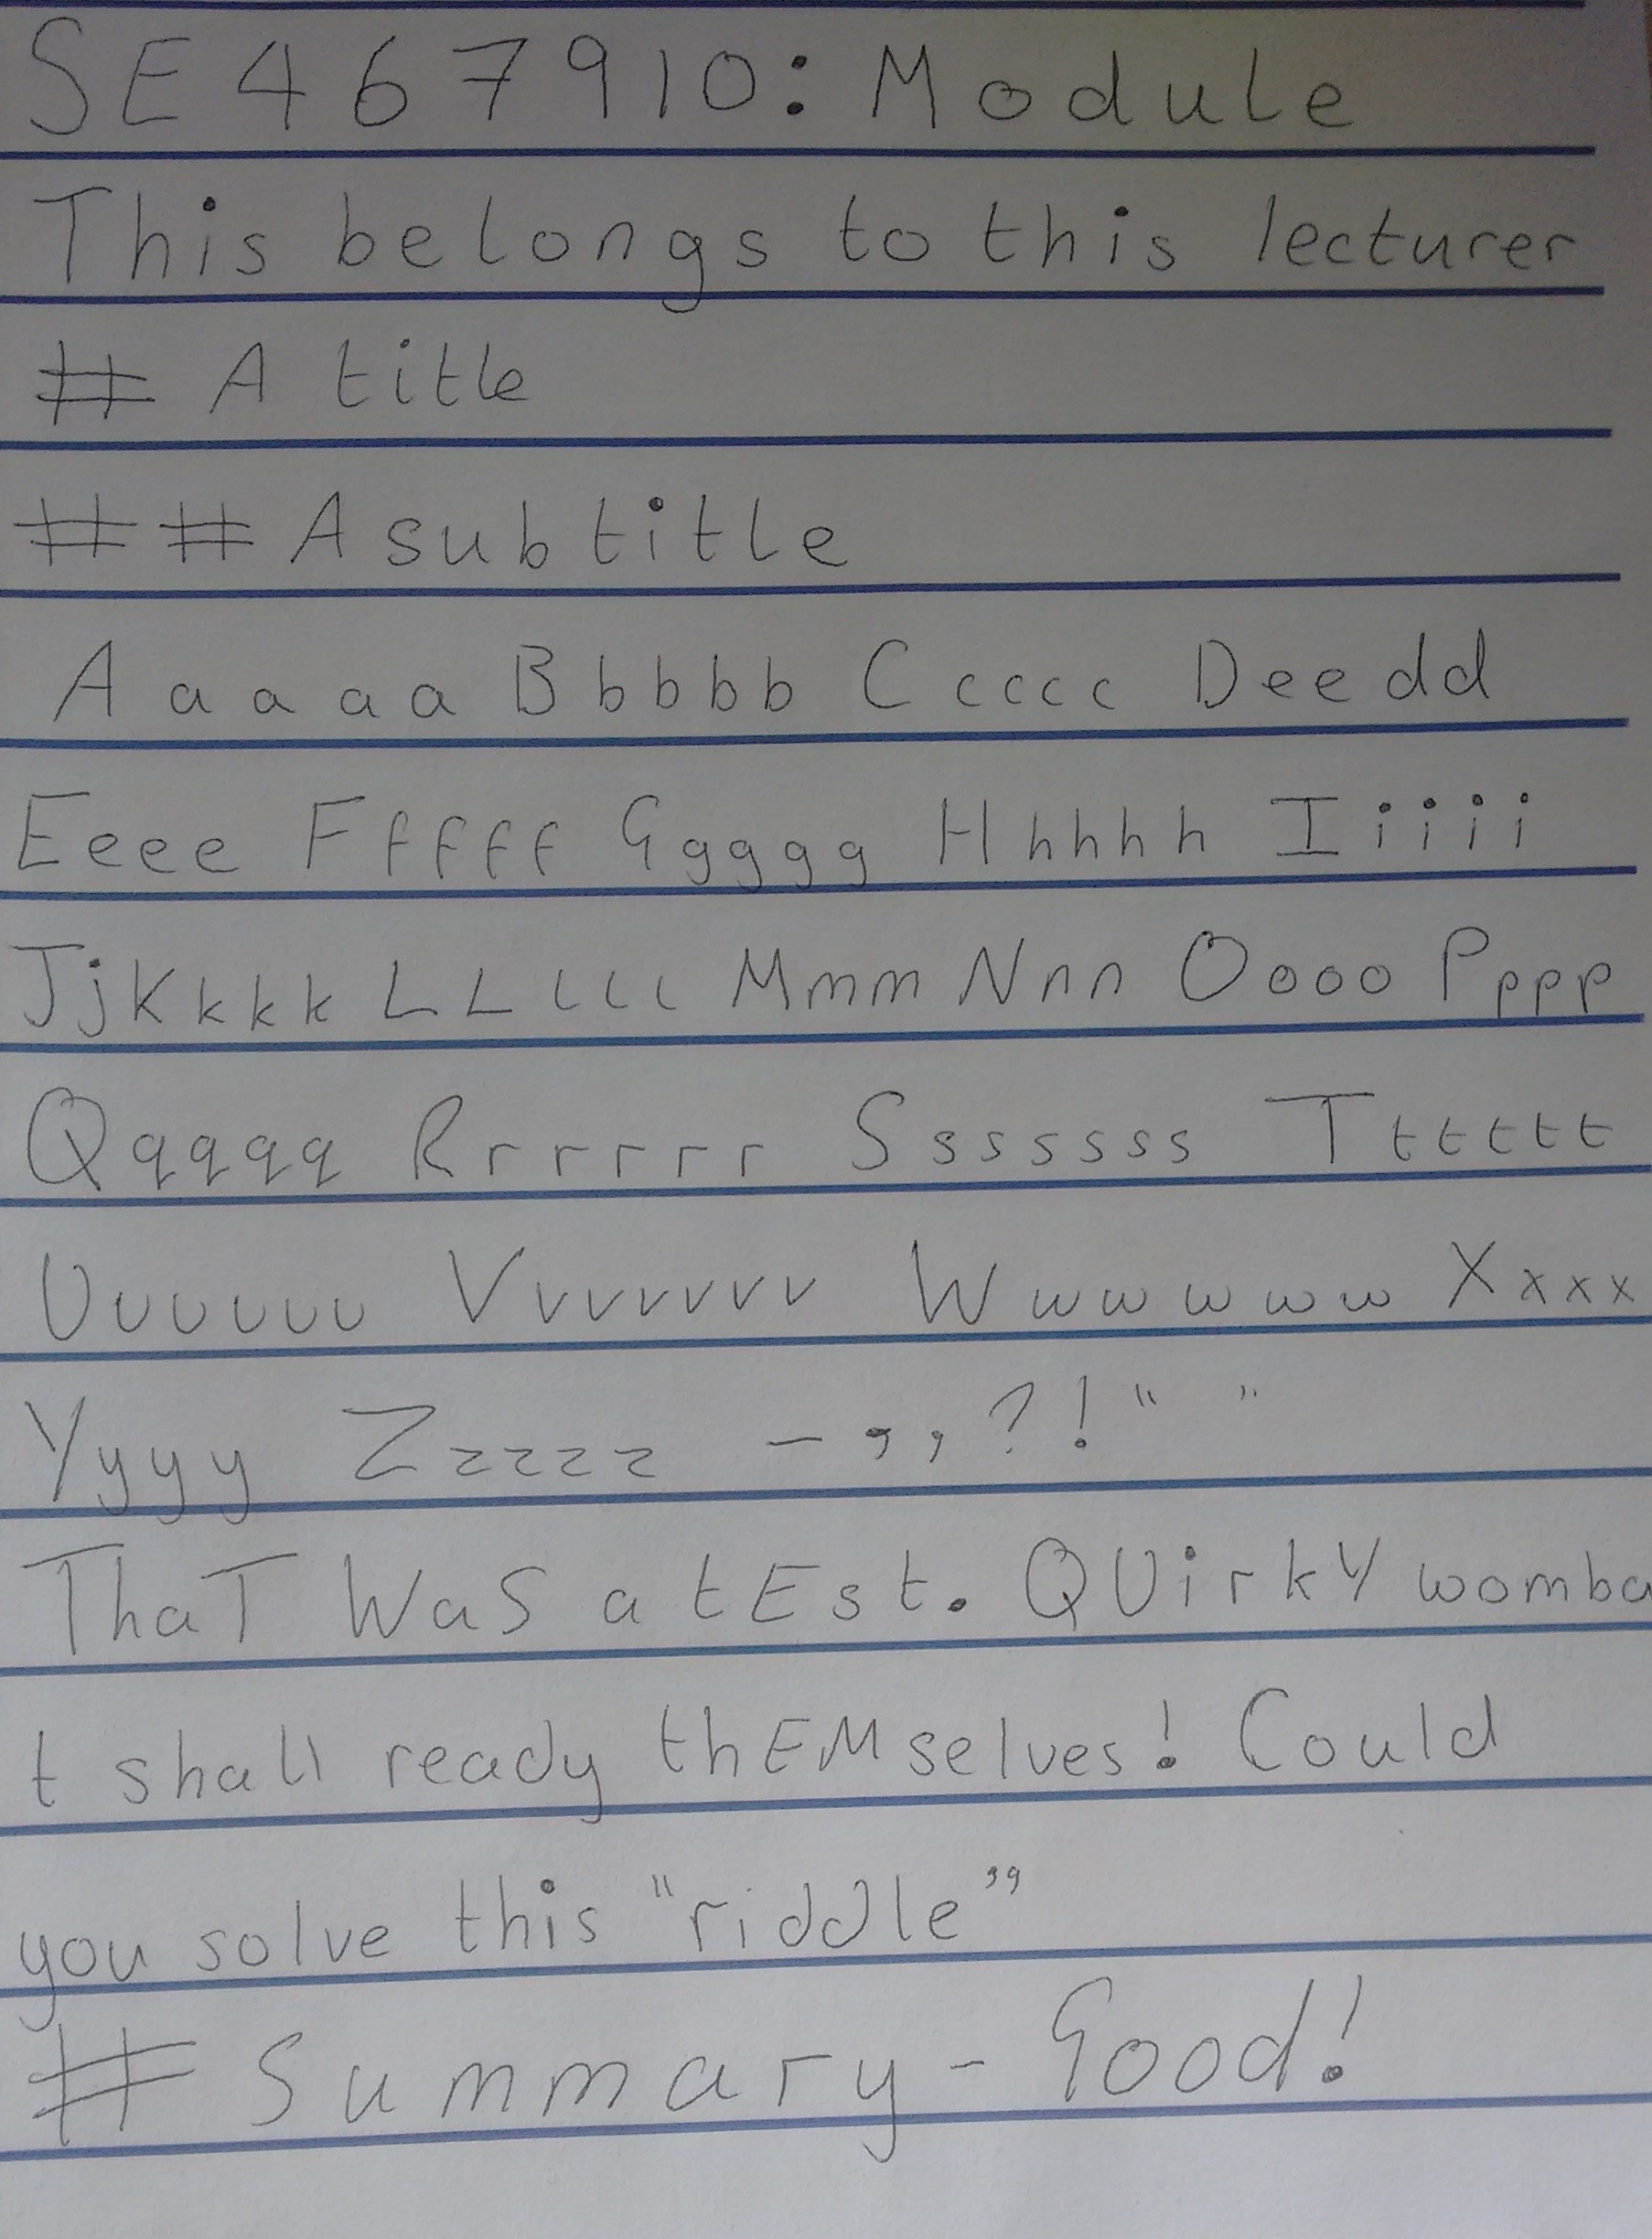 SE467910: Module
This belongs to this lecturer
# A title
## A subtitle
A a a a a B b b b b C c c c c D e e d d
E e e e F f f f f G g g g g g H h h h h I i i i i
J j K k k k L L l l l l M m m N n n O o o o P p p p
Q q q q q R r r r r r S s s s s s s T t t t t t
U u u u u u V v v v v v v v W w w w w w X x x x
Y y y y Z z z z z z - , , ? ! “ ”
ThaT WaS a tEst. QUirkY womba
t shall ready thEMselves! Could
you solve this “riddle”
# Summary - Good!